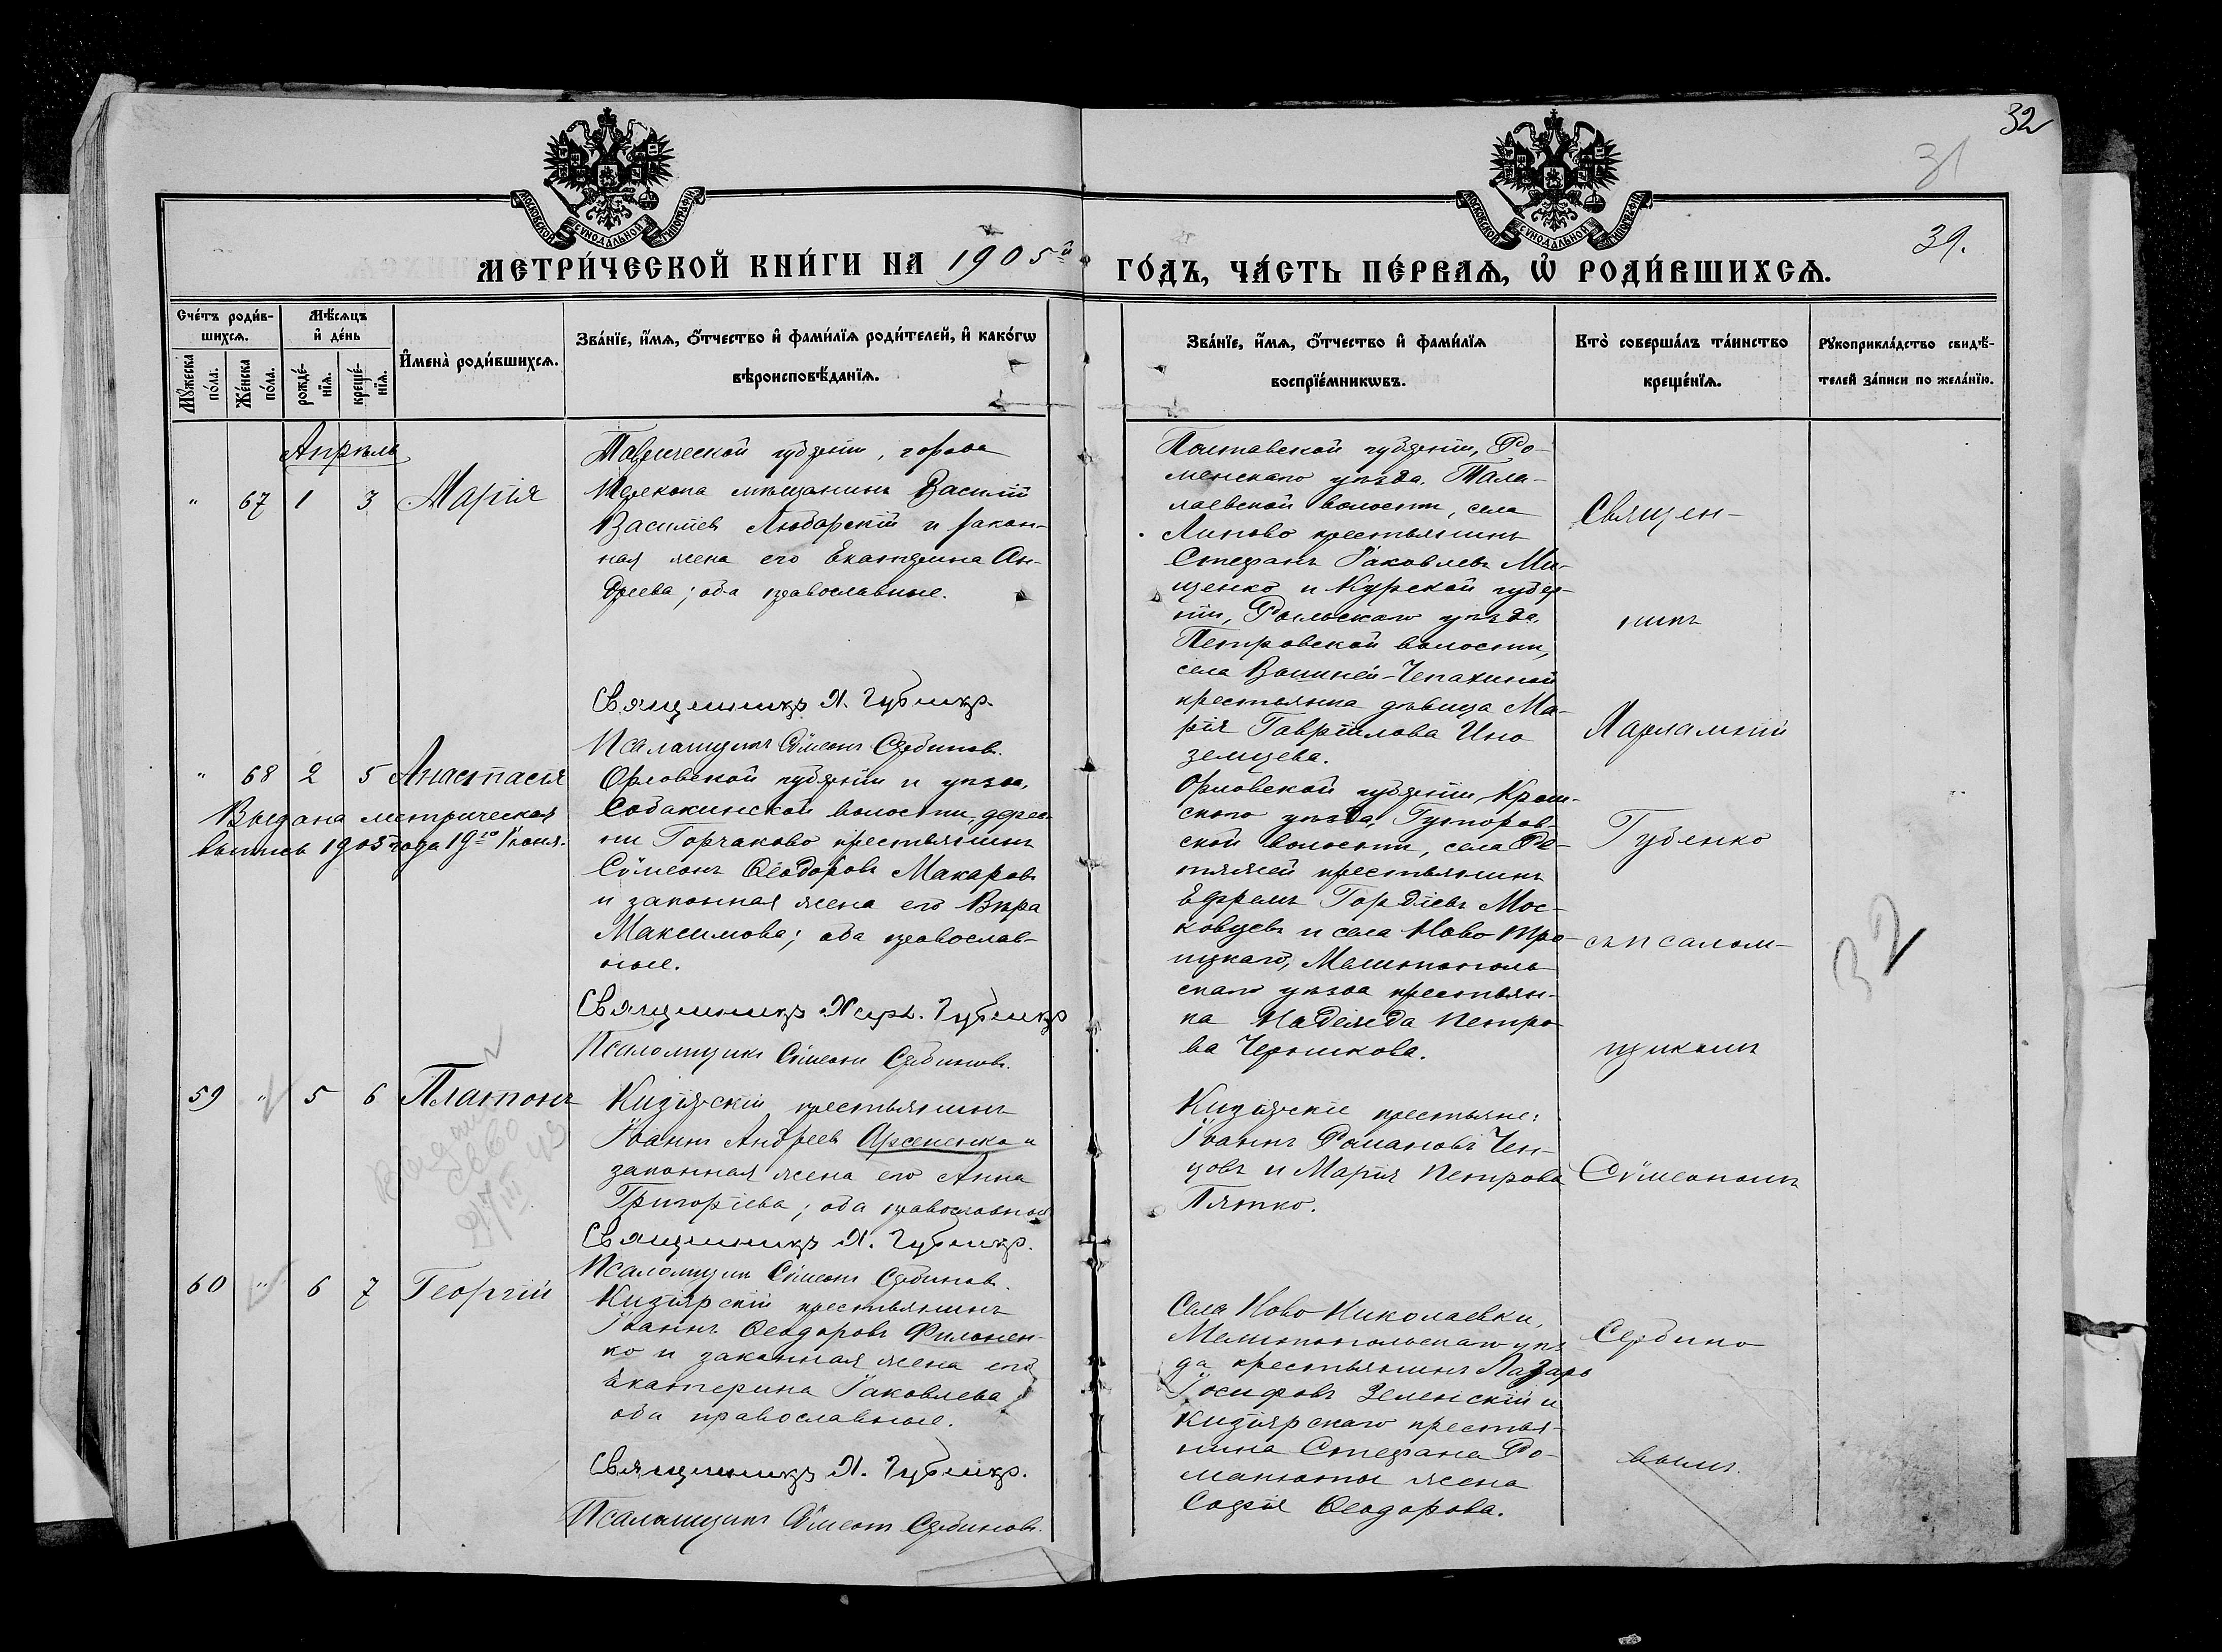 32
31
39.
МОСКОВСКОЙ СѴНОДАЛЬНОЙ ТИПОГРАФІИ
МОСКОВСКОЙ СѴНОДАЛЬНОЙ ТИПОГРАФІИ
МЕТРИ́ЧЕСКОЙ КНИ́ГИ НА 1905й ГО́ДЪ, ЧА́СТЬ ПЕ́РВАѦ, Ѡ҆ РОДИ́ВШИХСѦ.
Сче́тъ роди́в-
шихсѧ.
Мꙋ́жеска
по́ла.
Же́нска
по́ла.
Мѣ́сѧцъ
и҆ де́нь
рожде́-
нїѧ.
креще́-
нїѧ.
И҆мена̀ роди́вшихсѧ.
Зва́нїе, и҆́мѧ, ѻ҆́тчество и҆ фами́лїѧ роди́телей, и҆ како́гѡ
вѣроисповѣ́данїѧ.
Зва́нїе, и҆́мѧ, ѻ҆́тчество и҆ фами́лїѧ
воспрїе́мникѡвъ.
Кто̀ соверша́лъ та́инство
креще́нїѧ.
Рꙋкоприкла́дство свидѣ́-
телей за́писи по жела́нїю.
Апрѣль
" 67 1 3 Марія
Таврической губерніи, города
Перекопа мѣщанинъ Василій
Васильевъ Любарскій и закон-
ная жена его Екатерина Ан-
дреева; оба православные.
Священникъ Х. Губенко.
Псаломщикъ Сѵмеонъ Сербиновъ.
Полтавской губерніи, Ро-
менскаго уѣзда, Тала-
лаевской волости, села
Липово крестьянинъ
Стефанъ Іаковлевъ Ми-
щенко и Курской губер-
ніи, Рыльскаго уѣзда,
Петровской волости,
села
крестьянка дѣвица Ма-
рія Гавріилова Ино
земцева.
" 68 2 5 Анастасія
Выдана метрическая
выпись 1905 года 19го Іюня.
Орловской губерніи и уѣзда,
Собакинской волости, дерев-
ни Горчаково крестьянинъ
Сѵмеонъ Ѳеодоровъ Макаровъ
и законная жена его Вѣра
Максимова; оба православ-
ные.
Священникъ Харл. Губенко
Псаломщикъ Сѵмеонъ Сербиновъ.
Орловской губерніи, Кром-
скаго уѣзда,
ской волости, села Ре-
тяжей крестьянинъ
Ефремъ Гордіевъ Мос-
ковцевъ и села Ново Тро-
ицкаго, Мелитополь-
скаго уѣзда крестьян-
ка Надежда Петро-
ва Черникова.
59 " 5 6 Платонъ
Кизіярскій крестьянинъ
Іоаннъ Андреевъ Арсененко и
законная жена его Анна
Григоріева; оба православные
Священникъ Х. Губенко.
Псаломщикъ Сѵмеонъ Сербиновъ.
Кизіярскіе крестьяне:
Іоаннъ Романовъ Чен-
цовъ и Марія Петрова
Пятко.
60 " 6 7 Георгій
Кизіярскій крестьянинъ
Іоаннъ Ѳеодоровъ Филонен-
ко и законная жена его
Екатерина Іаковлева;
оба православные.
Священникъ Х. Губенко.
Псаломщикъ Сѵмеонъ Сербиновъ.
Села Ново Николаевки,
Мелитопольскаго уѣз-
да крестьянинъ Лазарь
Іосифовъ Зеленскій и
Кизіярскаго крестья-
нина Стефана Ро-
манюты жена
Софія Ѳеодорова.
Священ-
никъ
Харлампій
Губенко
съ псалом-
щикомъ
Сѵмеономъ
Сербино
вымъ.
32